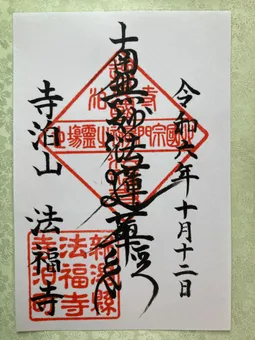 令和六年十月十二日
南無妙法蓮華経
寺泊山 法福寺
新潟縣
法福寺
寺泊